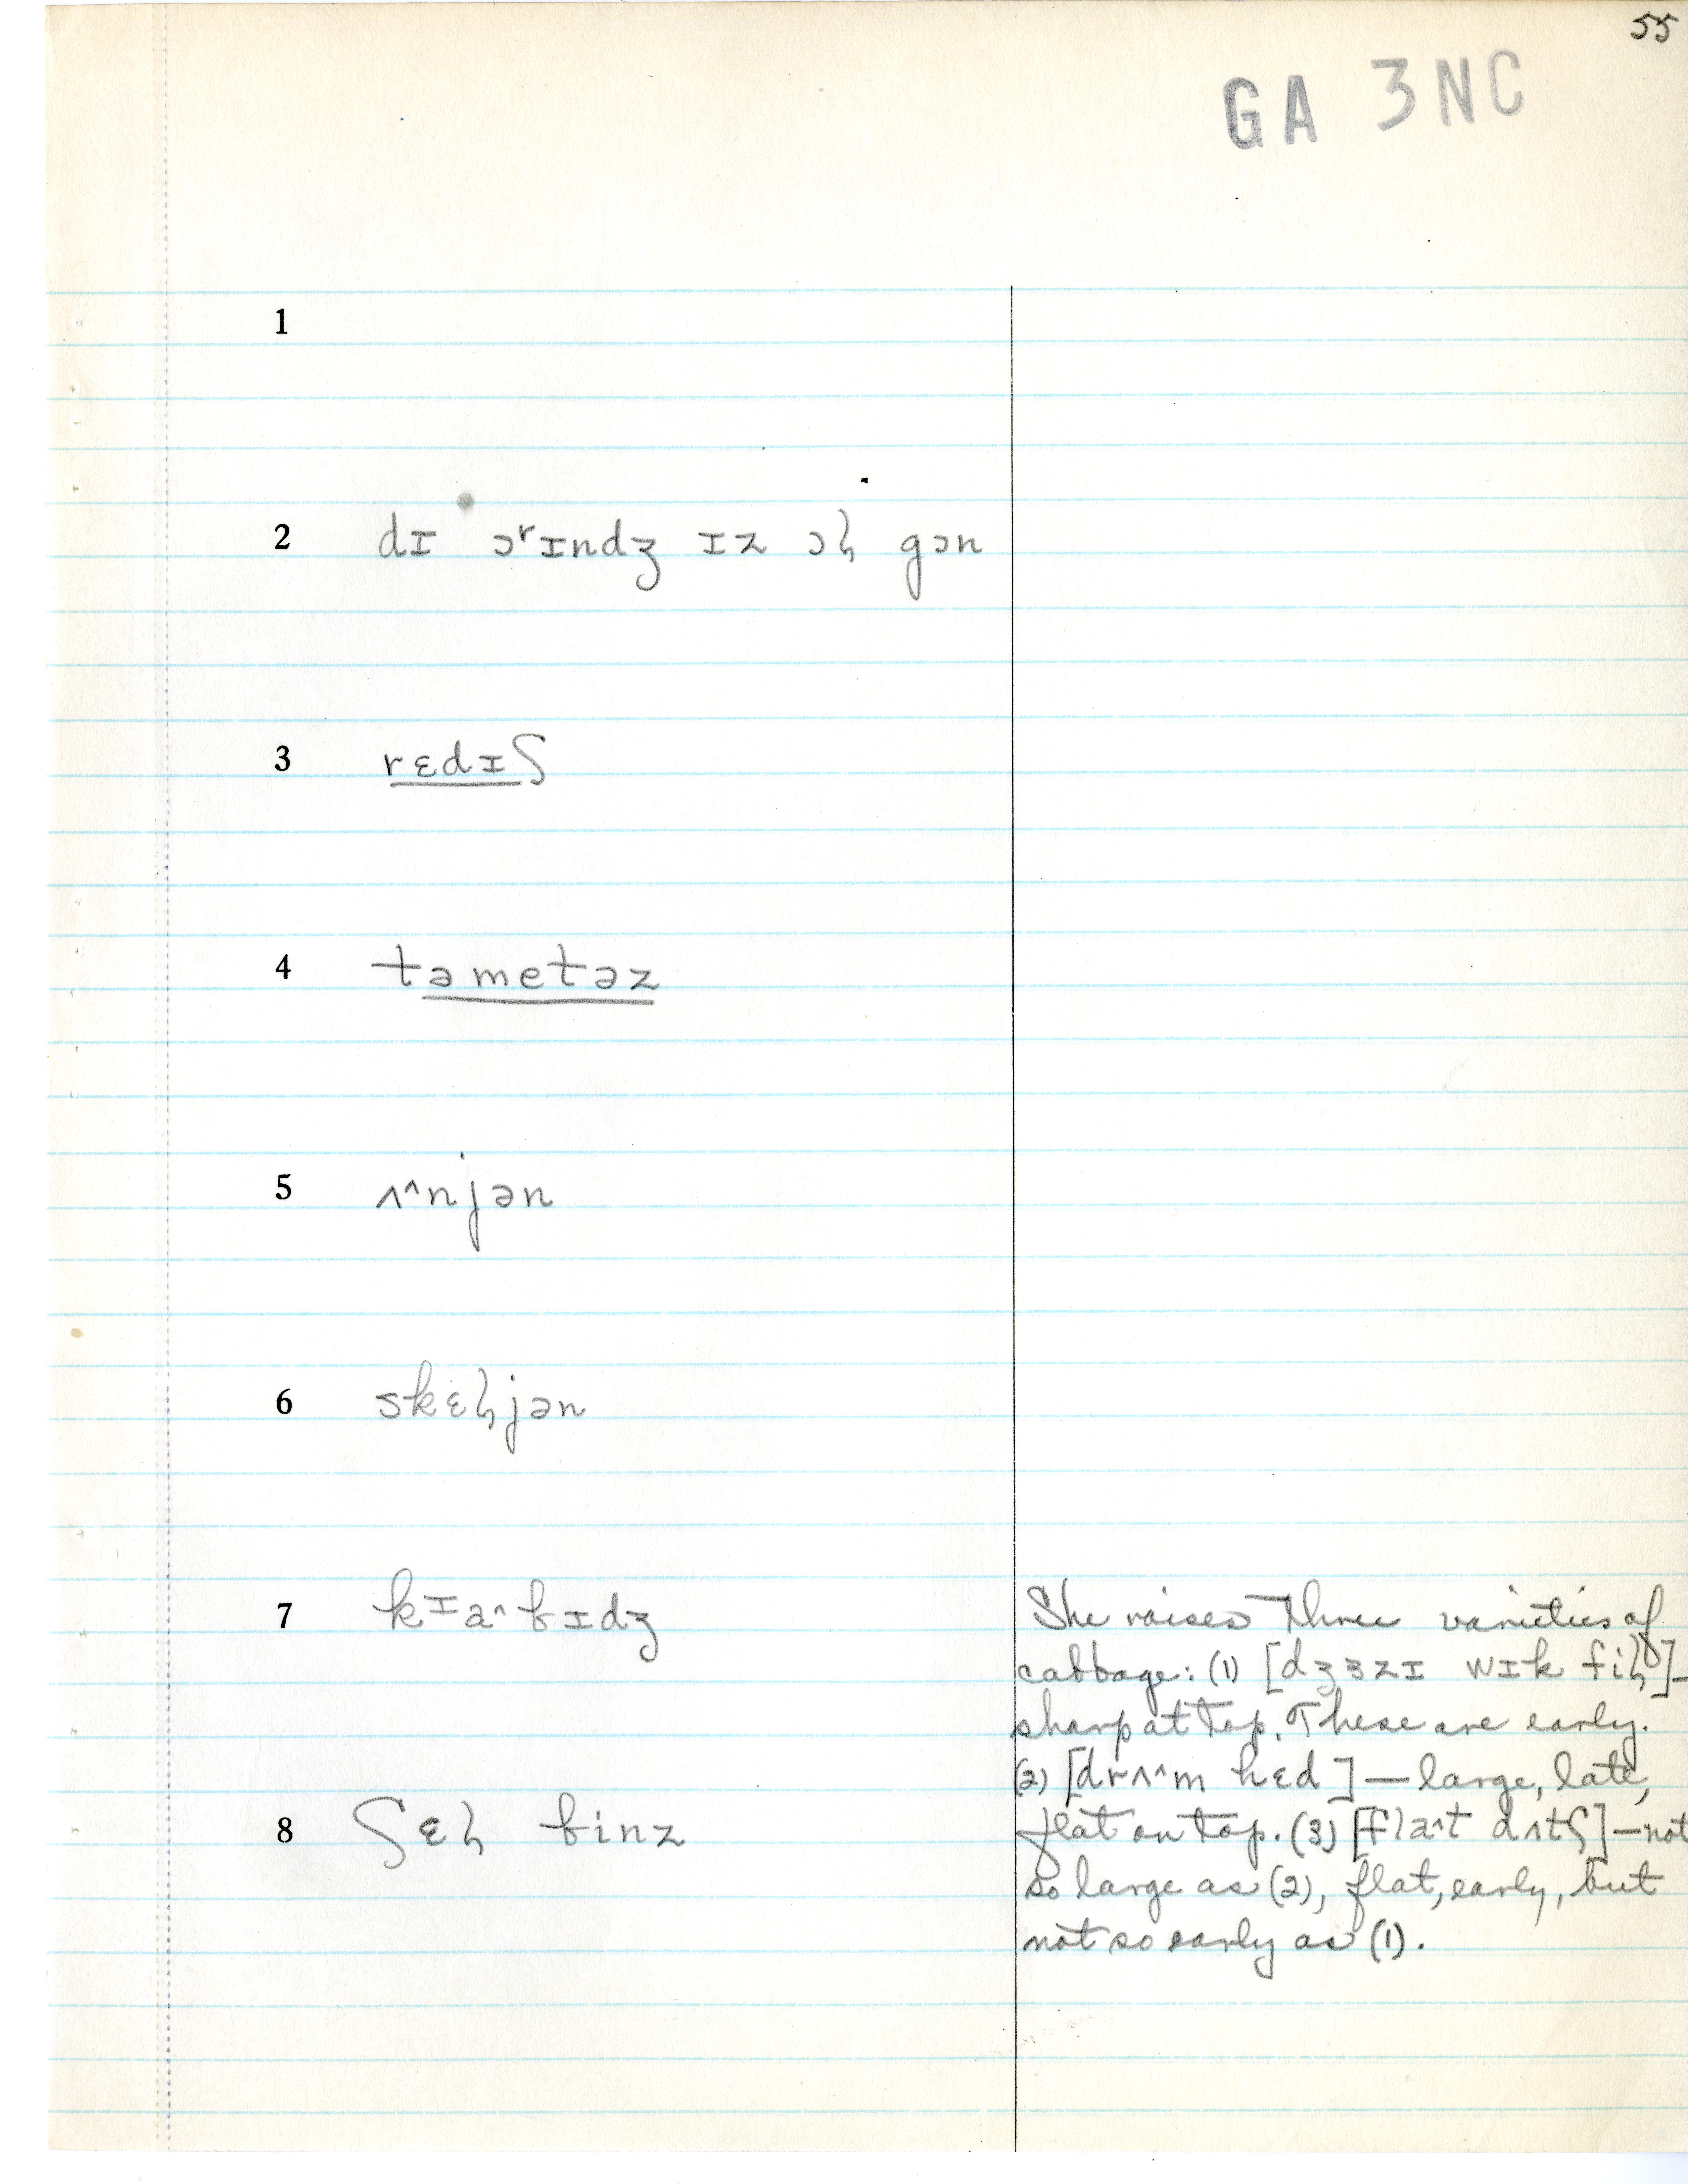 55
GA 3NC
1
2 dɪ ɔʳɪndʒ ɪz ɔɫ gɔn
3 rɛdɪʃ
4 təmetəz
5 ʌ^njən
6 skɛɫjən
7 kᶦa^bɪdʒ
She raises three varieties of
cabbage: (1) [dʒɜzɪ wɪk fiɫ]—
sharp at top. These are early.
(2) [drʌ^m hɛd] — large, late,
8 ʃɛɫ binz
flat on top. (3) [fla^t dʌtʃ] — not
so large as (2), flat, early, but
not so early as (1).